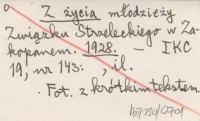 Z życia młodzieży
Związku Strzeleckiego w Za-
kopanem. 1928. — IKC
19, nr 143: , il.
Fot. z krótkim tekstem.